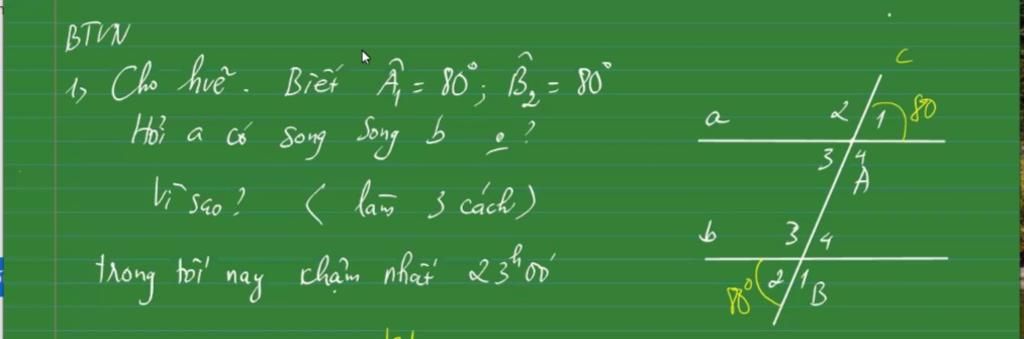 BTVN
1, Cho huẽ. Biết Â₁ = 80°; B̂₂ = 80°
Hỏi a có song song b ko?
Vì sao? ( làm 3 cách)
trong tối nay chậm nhất 23h00'
c
a
2 1 80
3 4
A
b
3 4
80° 2 1 B